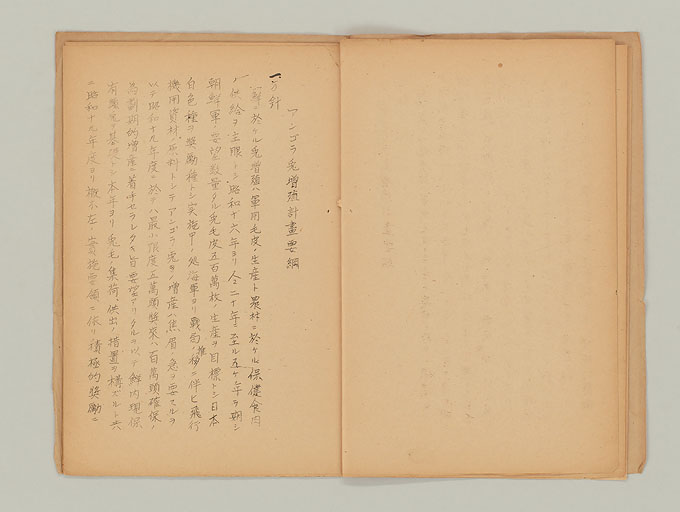 アンゴラ兎増殖計畫要綱
一、方針
朝鮮ニ於ケル兎増殖ハ軍用毛皮ノ生産ト農村ニ於ケル保健食肉
ノ供給ヲ主眼トシ昭和十六年ヨリ仝二十年ニ至ル五ケ年ヲ期シ
朝鮮軍ノ要望数量タル兎毛皮五百萬枚ノ生産ヲ目標トシ日本
白色種ヲ奨励種トシ実施中ノ処海軍ヨリ戰局ノ推移ニ伴ヒ飛行
機用資材ノ原料トシテアンゴラ兎毛ノ増産ハ焦眉ノ急ヲ要スルヲ
以テ昭和十九年度ニ於テハ最小限度五萬頭将来ハ百萬頭確保ノ
為劃期的増産ニ着手セラレタキ旨要望アリタルヲ以テ鮮内現保
有兎ヲ基礎トシ本年ヨリ兎毛ノ集荷、供出ノ措置ヲ構ズルト共
ニ昭和十九年度ヨリ概ネ左ノ實施要領ニ依リ積極的奨励ニ